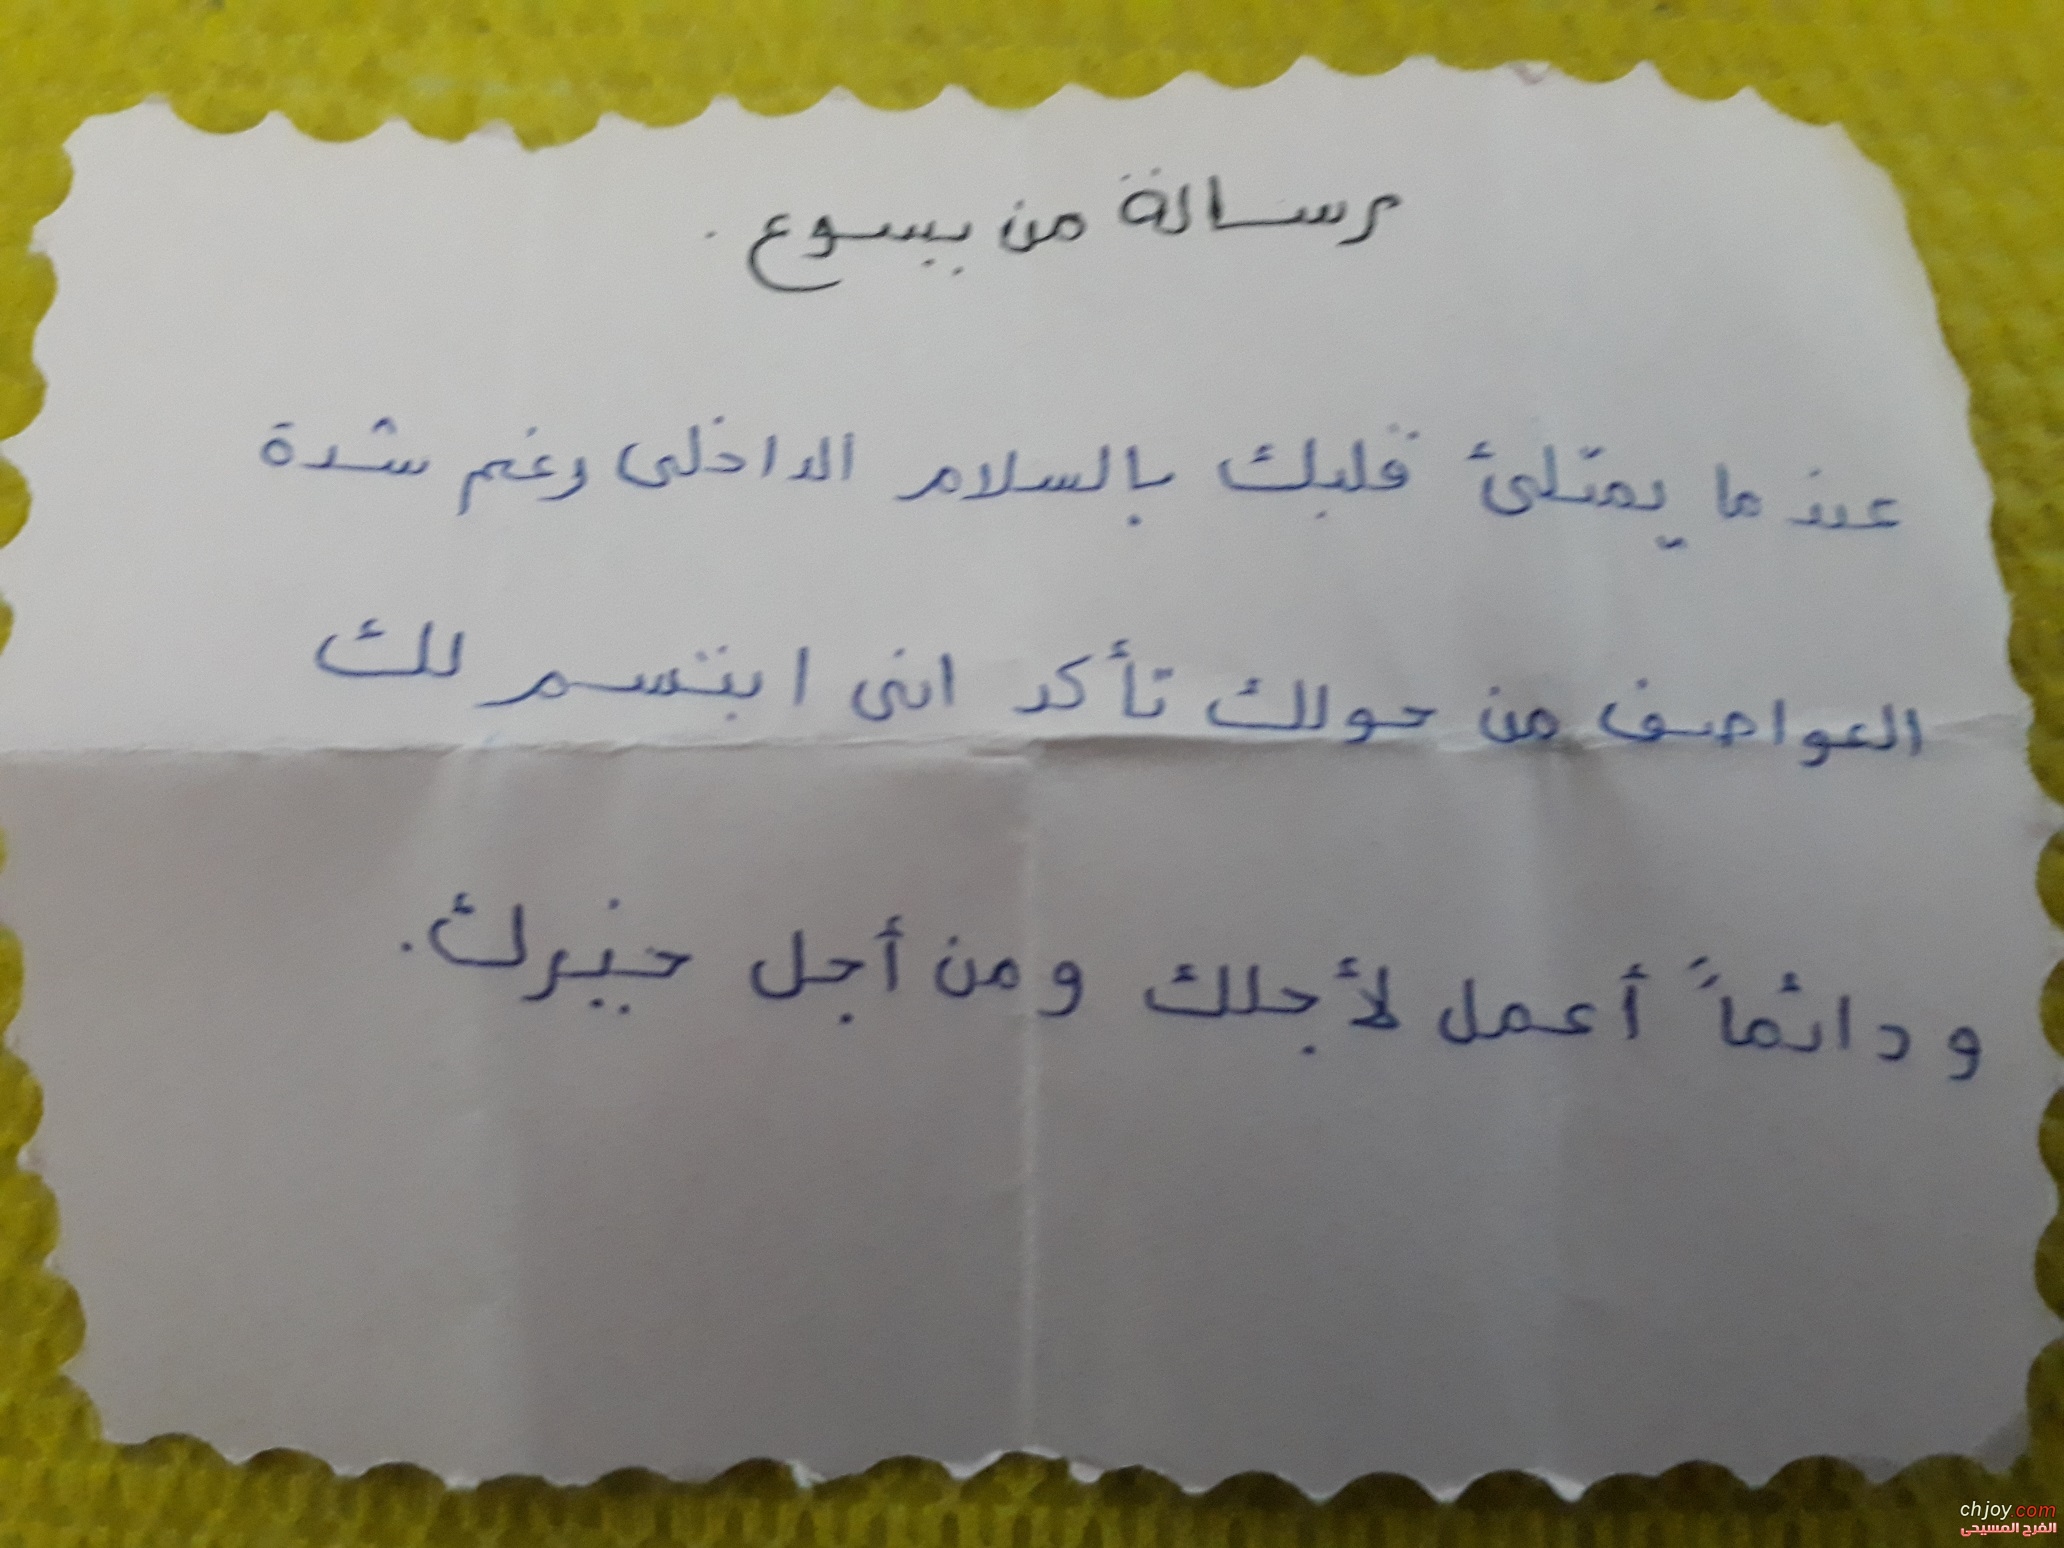 رسالة من يسوع .
عندما يمتلئ قلبك بالسلام الداخلى رغم شدة
العواصف من حولك تأكد انى ابتسم لك
ودائماً أعمل لأجلك ومن أجل خيرك.
chjoy.com
الفرح المسيحى